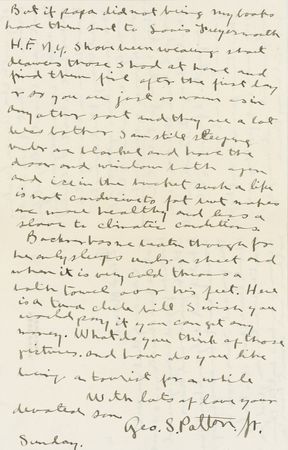 But if papa did not bring my books
have them sent to Louis
H.F. N.Y. I have been wearing short
drawers those I had at home and
find them fine after the first day
or so you are just as warm as in
any other sort and they are a lot
less bother I am still sleeping
under one blanket and have the
door and window both open
and ice in the bucket such a life
is not conducive to fat but makes
one more healthy and less a
slave to climatic conditions.
has me beaten though for
he only sleeps under a sheet and
when it is very cold throws a
bath towel over his feet. Here
is a club bill I wish you
would pay if you can get any
money. What do you think of those
pictures. and how do you like
being a tourist for a while
With lots of love your
devoted son
Geo. S. Patton. Jr.
Sunday.